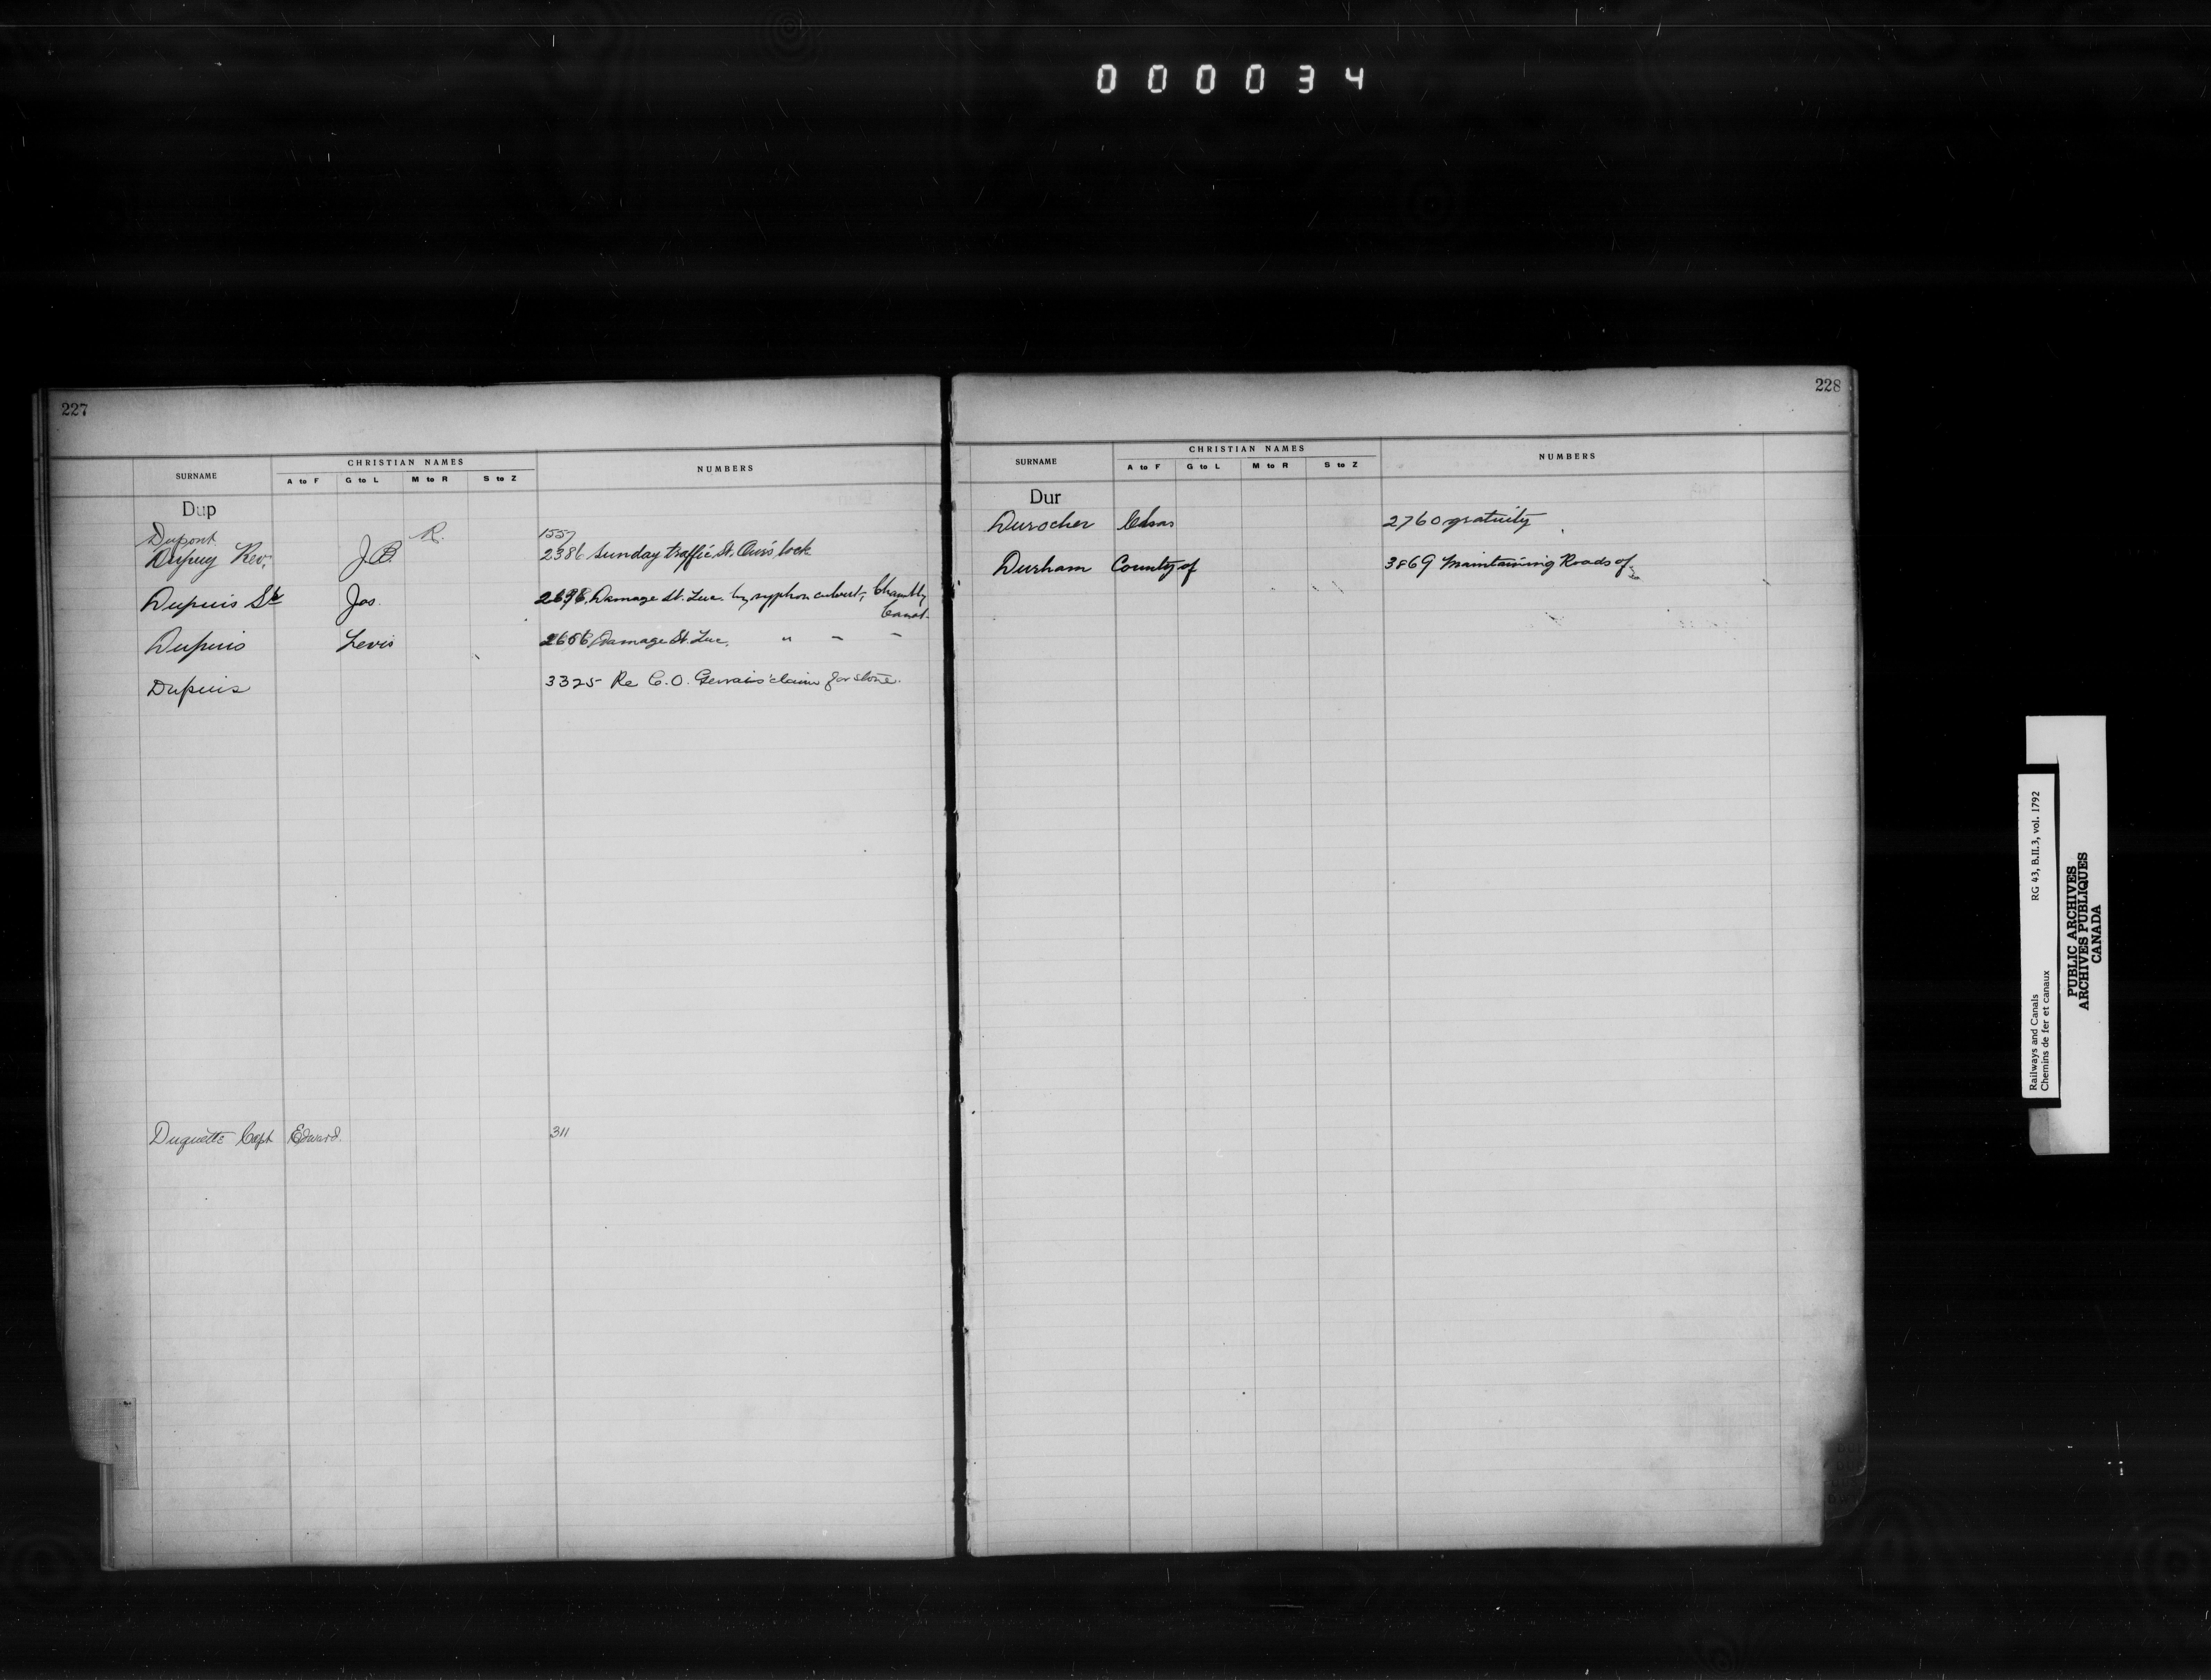 000034
227
SURNAME CHRISTIAN NAMES NUMBERS
A to F G to L M to R S to Z
Dup
Dupont R. 1557
Dupuy Rev: J.B. 2386 Sunday traffic St. Ours lock
Dupuis Jos. Damage St. Luc. by syphon culvert, Chambly
Canal.
Dupuis Levis 2656 Damage St. Luc. " - -
Dupuis 3325 Re C.O. Gervais' claim for stone.
Duquette Capt Edward. 311
228
SURNAME CHRISTIAN NAMES NUMBERS
A to F G to L M to R S to Z
Dur
Durocher Chas 2760 gratuity
Durham County of 3869 Maintaining Roads of
Railways and Canals RG 43, B.II.3, vol. 1792
Chemins de fer et canaux
PUBLIC ARCHIVES
ARCHIVES PUBLIQUES
CANADA